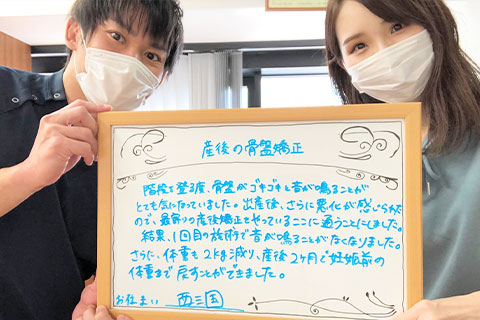 産後の骨盤矯正
階段を登る度、骨盤がゴキゴキと音が鳴ることが
とても気になっていました。出産後、さらに悪化が感じられた
ので、最寄りの産後矯正をやっているここに通うことにしました。
結果、1回目の施術で音が鳴ることがなくなりました。
さらに、体重も2kg減り、産後2ヶ月で妊娠前の
体重まで戻すことができました。
お住まい 西三国